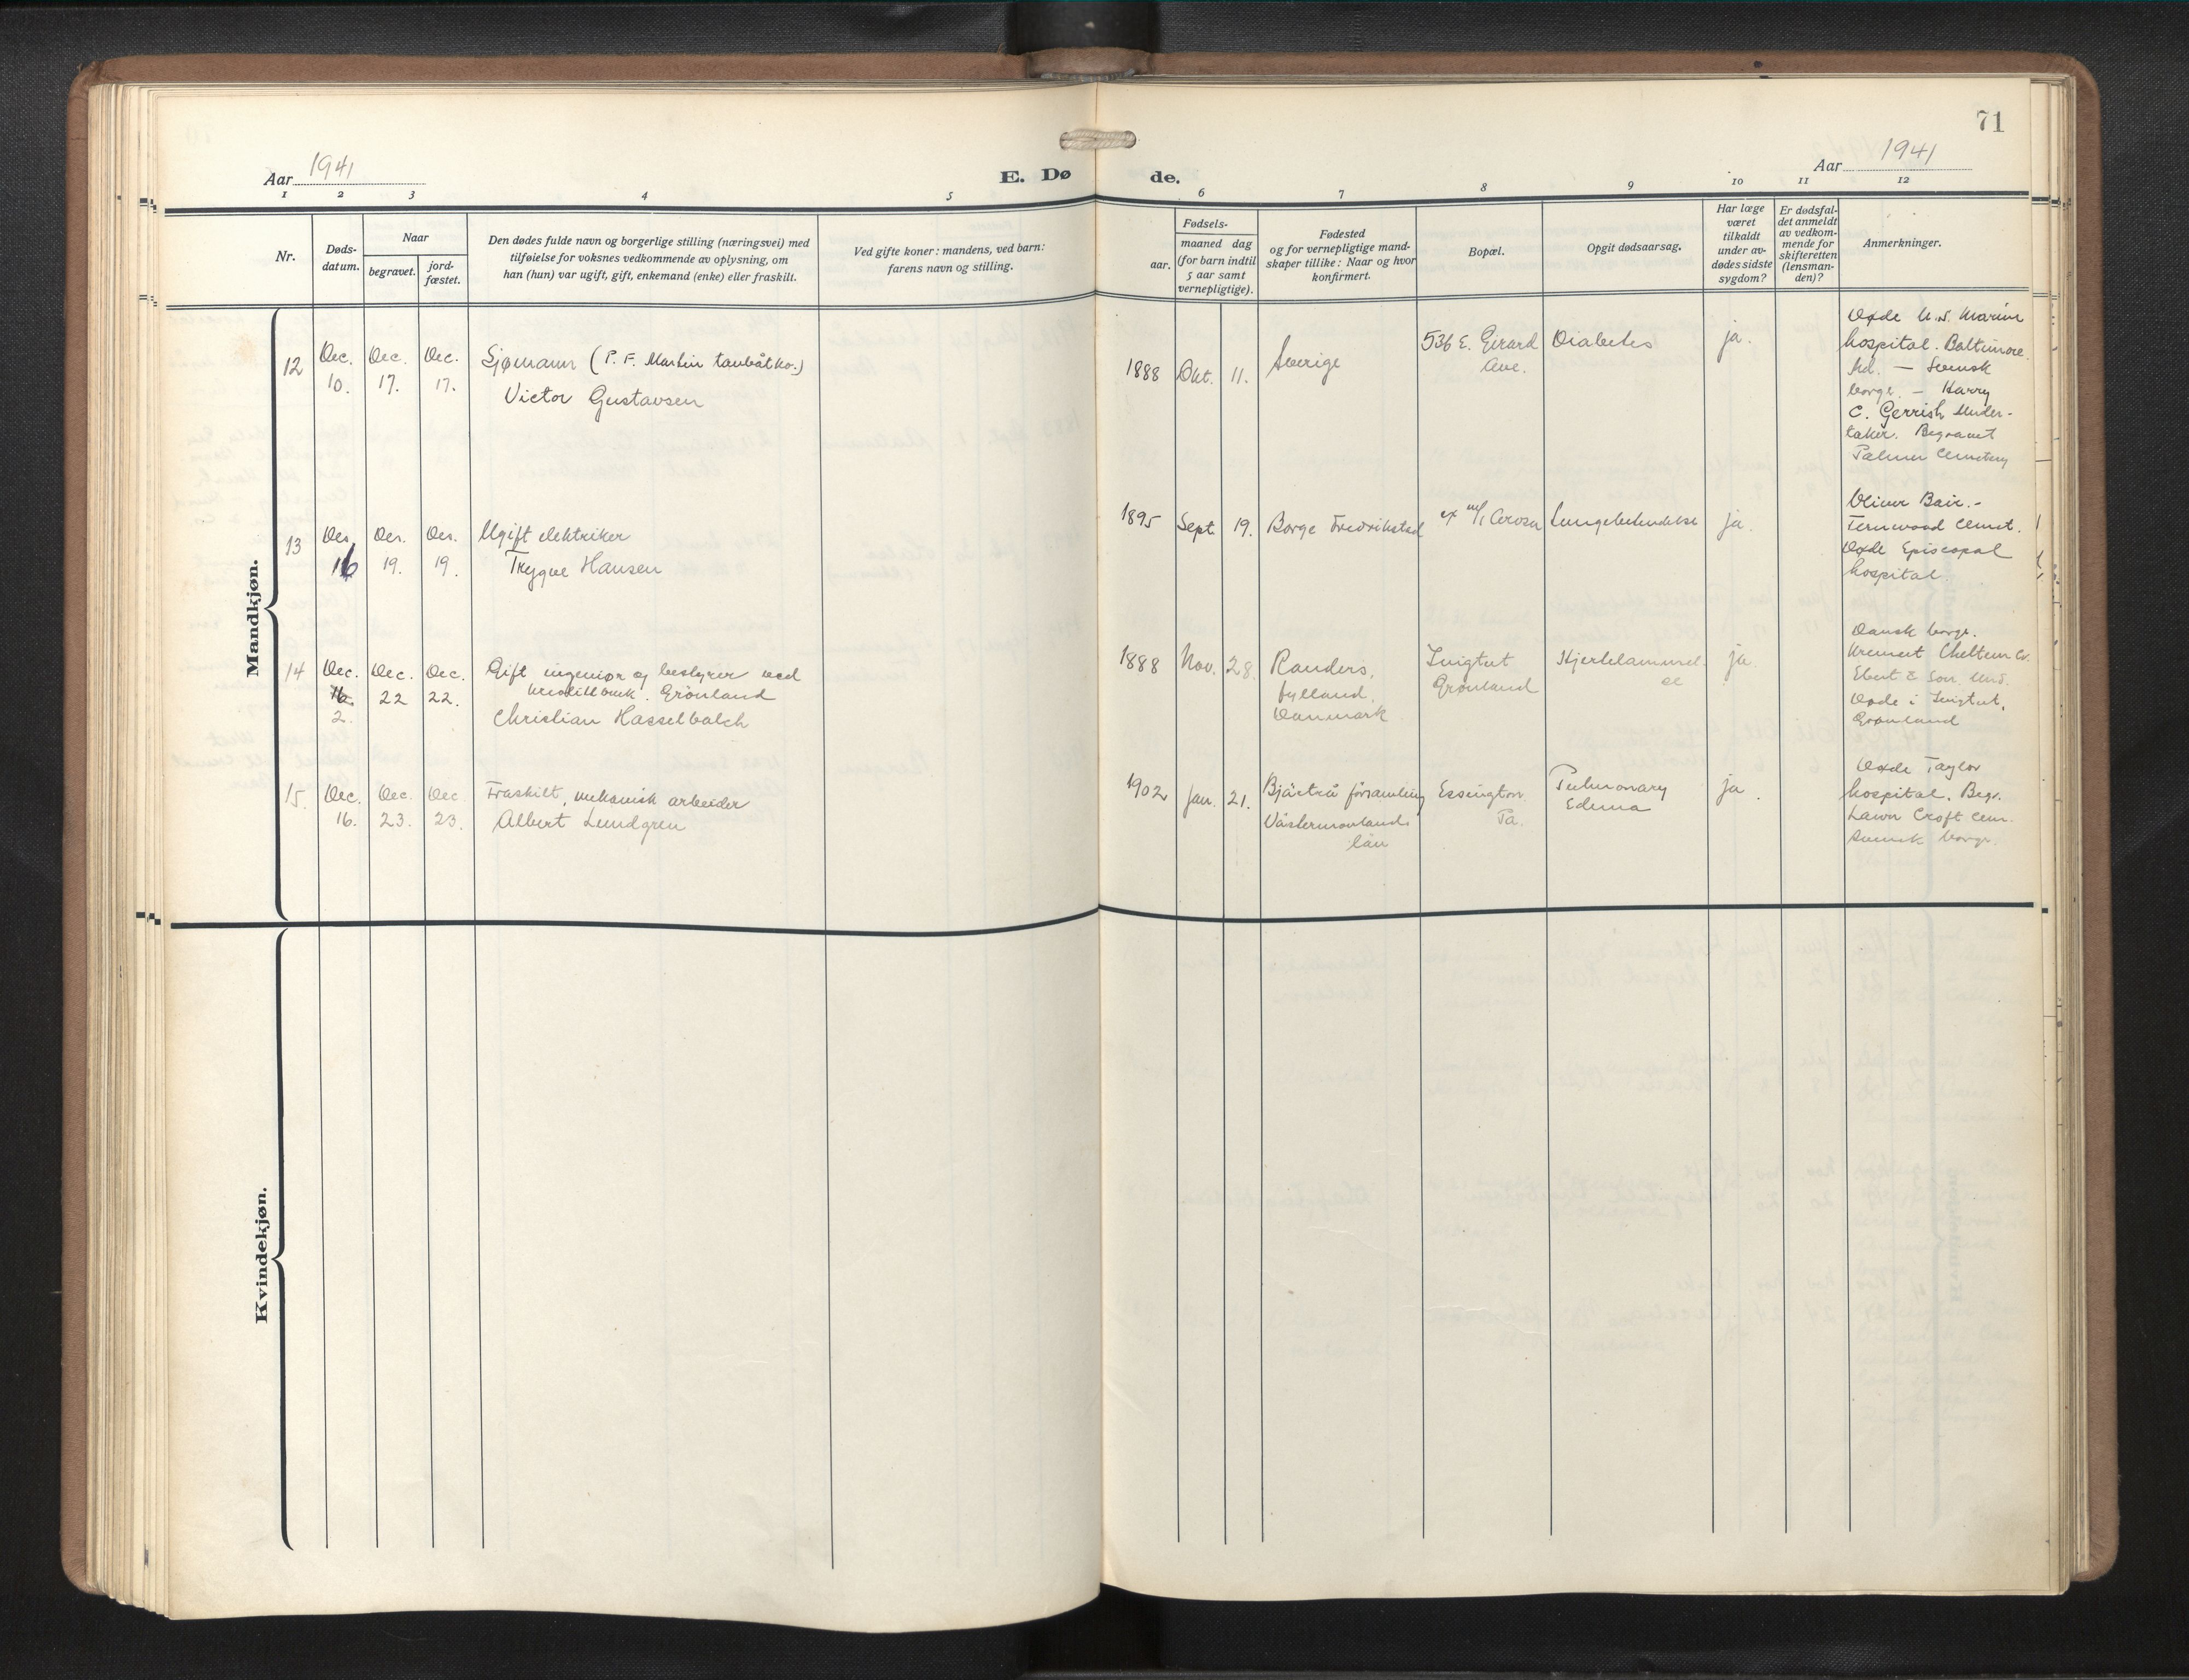 71
Aar 1941
E. Dø de.
Aar 1941
1 2 3 4 5 6 7 8 9 10 11 12
Nr.
Døds-
datum.
Naar
begravet.
jord-
fæstet.
Den dødes fulde navn og borgerlige stilling (næringsvei) med
tilføielse for voksnes vedkommende av oplysning, om
han (hun) var ugift, gift, enkemand (enke) eller fraskilt.
Ved gifte koner: mandens, ved barn:
farens navn og stilling.
Fødsels-
aar.
maaned dag
(for barn indtil
5 aar samt
vernepligtige).
Fødested
og for vernepligtige mand-
skaper tillike: Naar og hvor
konfirmert.
Bopæl.
Opgit dødsaarsag.
Har læge
været
tilkaldt
under av-
dødes sidste
sygdom?
Er dødsfal-
det anmeldt
av vedkom-
mende for
skifteretten
(lensman-
den)?
Anmerkninger.
Mandkjøn.
12
Dec.
10.
Dec.
17.
Dec.
17.
Sjømann (P. F. Martin taubåtko.)
Victor Gustavsen
1888 Okt. 11.
Sverige
536 E. Girard
Ave.
Diabetes
ja.
Døde U.S. Marine
hospital. Baltimore
Md. — Svensk
borge. — Harry
C. Gerrish Under-
taker. Begravet
Palmer Cemetery
13
Des.
16
Des.
19.
Des.
19.
Ugift elektriker
Trygve Hansen
1895 Sept. 19.
Borge Fredrikstad
ex m/s
Lungebetendelse
ja.
Oliver Bair. -
Fernwood Cemet.
Døde Episcopal
hospital.
14
Dec.
16.
2.
Dec.
22
Dec.
22.
Gift ingeniør og bestyrer ved
Grønland
Christian Hasselbalch
1888 Nov. 28.
Randers,
Jylland.
Danmark
Ivigtut
Grønland
Hjertelammel-
se
ja.
Dansk borge.
Kremert
Ebert & Son, Und.
Døde i Ivigtut,
Grønland
15.
Dec.
16.
Dec.
23.
Dec.
23.
Fraskilt, mekanisk arbeider
Albert Lundgren
1902 Jan. 21.
Bjärtrå församling
Västernorrlands
län
Essington
Pa.
Pulmonary
Edema
ja.
Døde Taylor
hospital. Begr.
Lawn Croft Cem.
Svensk borge.
Kvindekjøn.